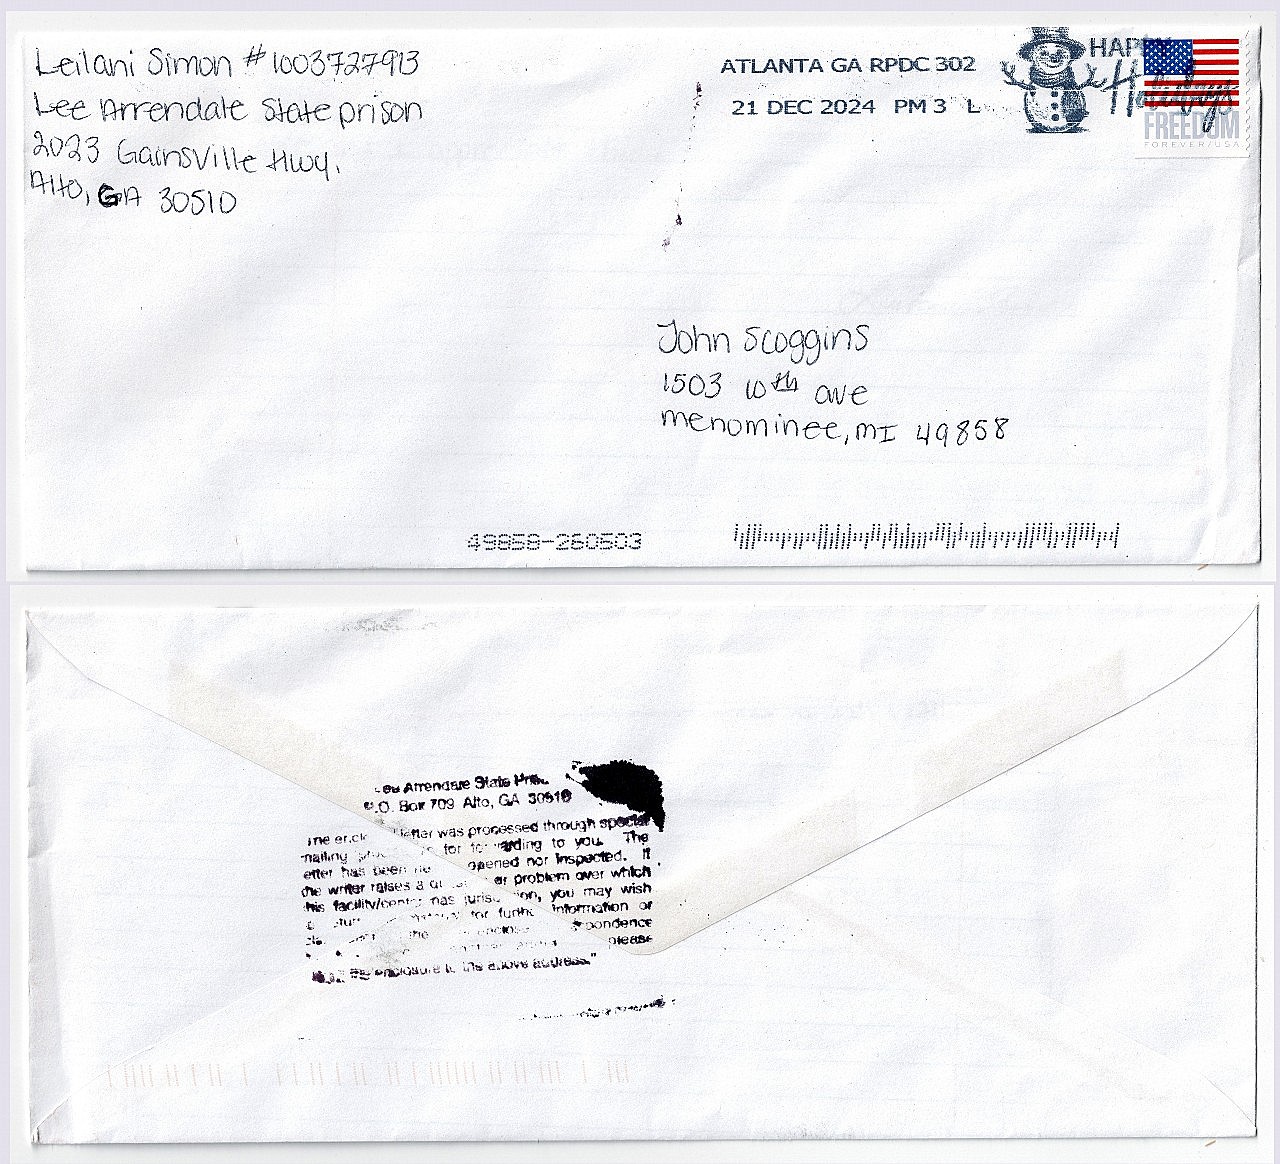 Leilani Simon #1003727913
Lee Arrendale State prison
2023 Gainsville Hwy.
Alto, GA 30510
ATLANTA GA RPDC 302
21 DEC 2024 PM 3 L
HAPPY
Holidays
FREEDOM
FOREVER/USA
John Scoggins
1503 10th ave
menominee, MI 49858
49858-260503
Arrendale State
P.O. Box 709 Alto, GA 30510
letter was processed through special
mailing for forwarding to you. The
letter has been opened nor inspected. If
the writer raises a or problem over which
this facility/center has jurisdiction, you may wish
for further information or
the
please
enclosure to the above address."